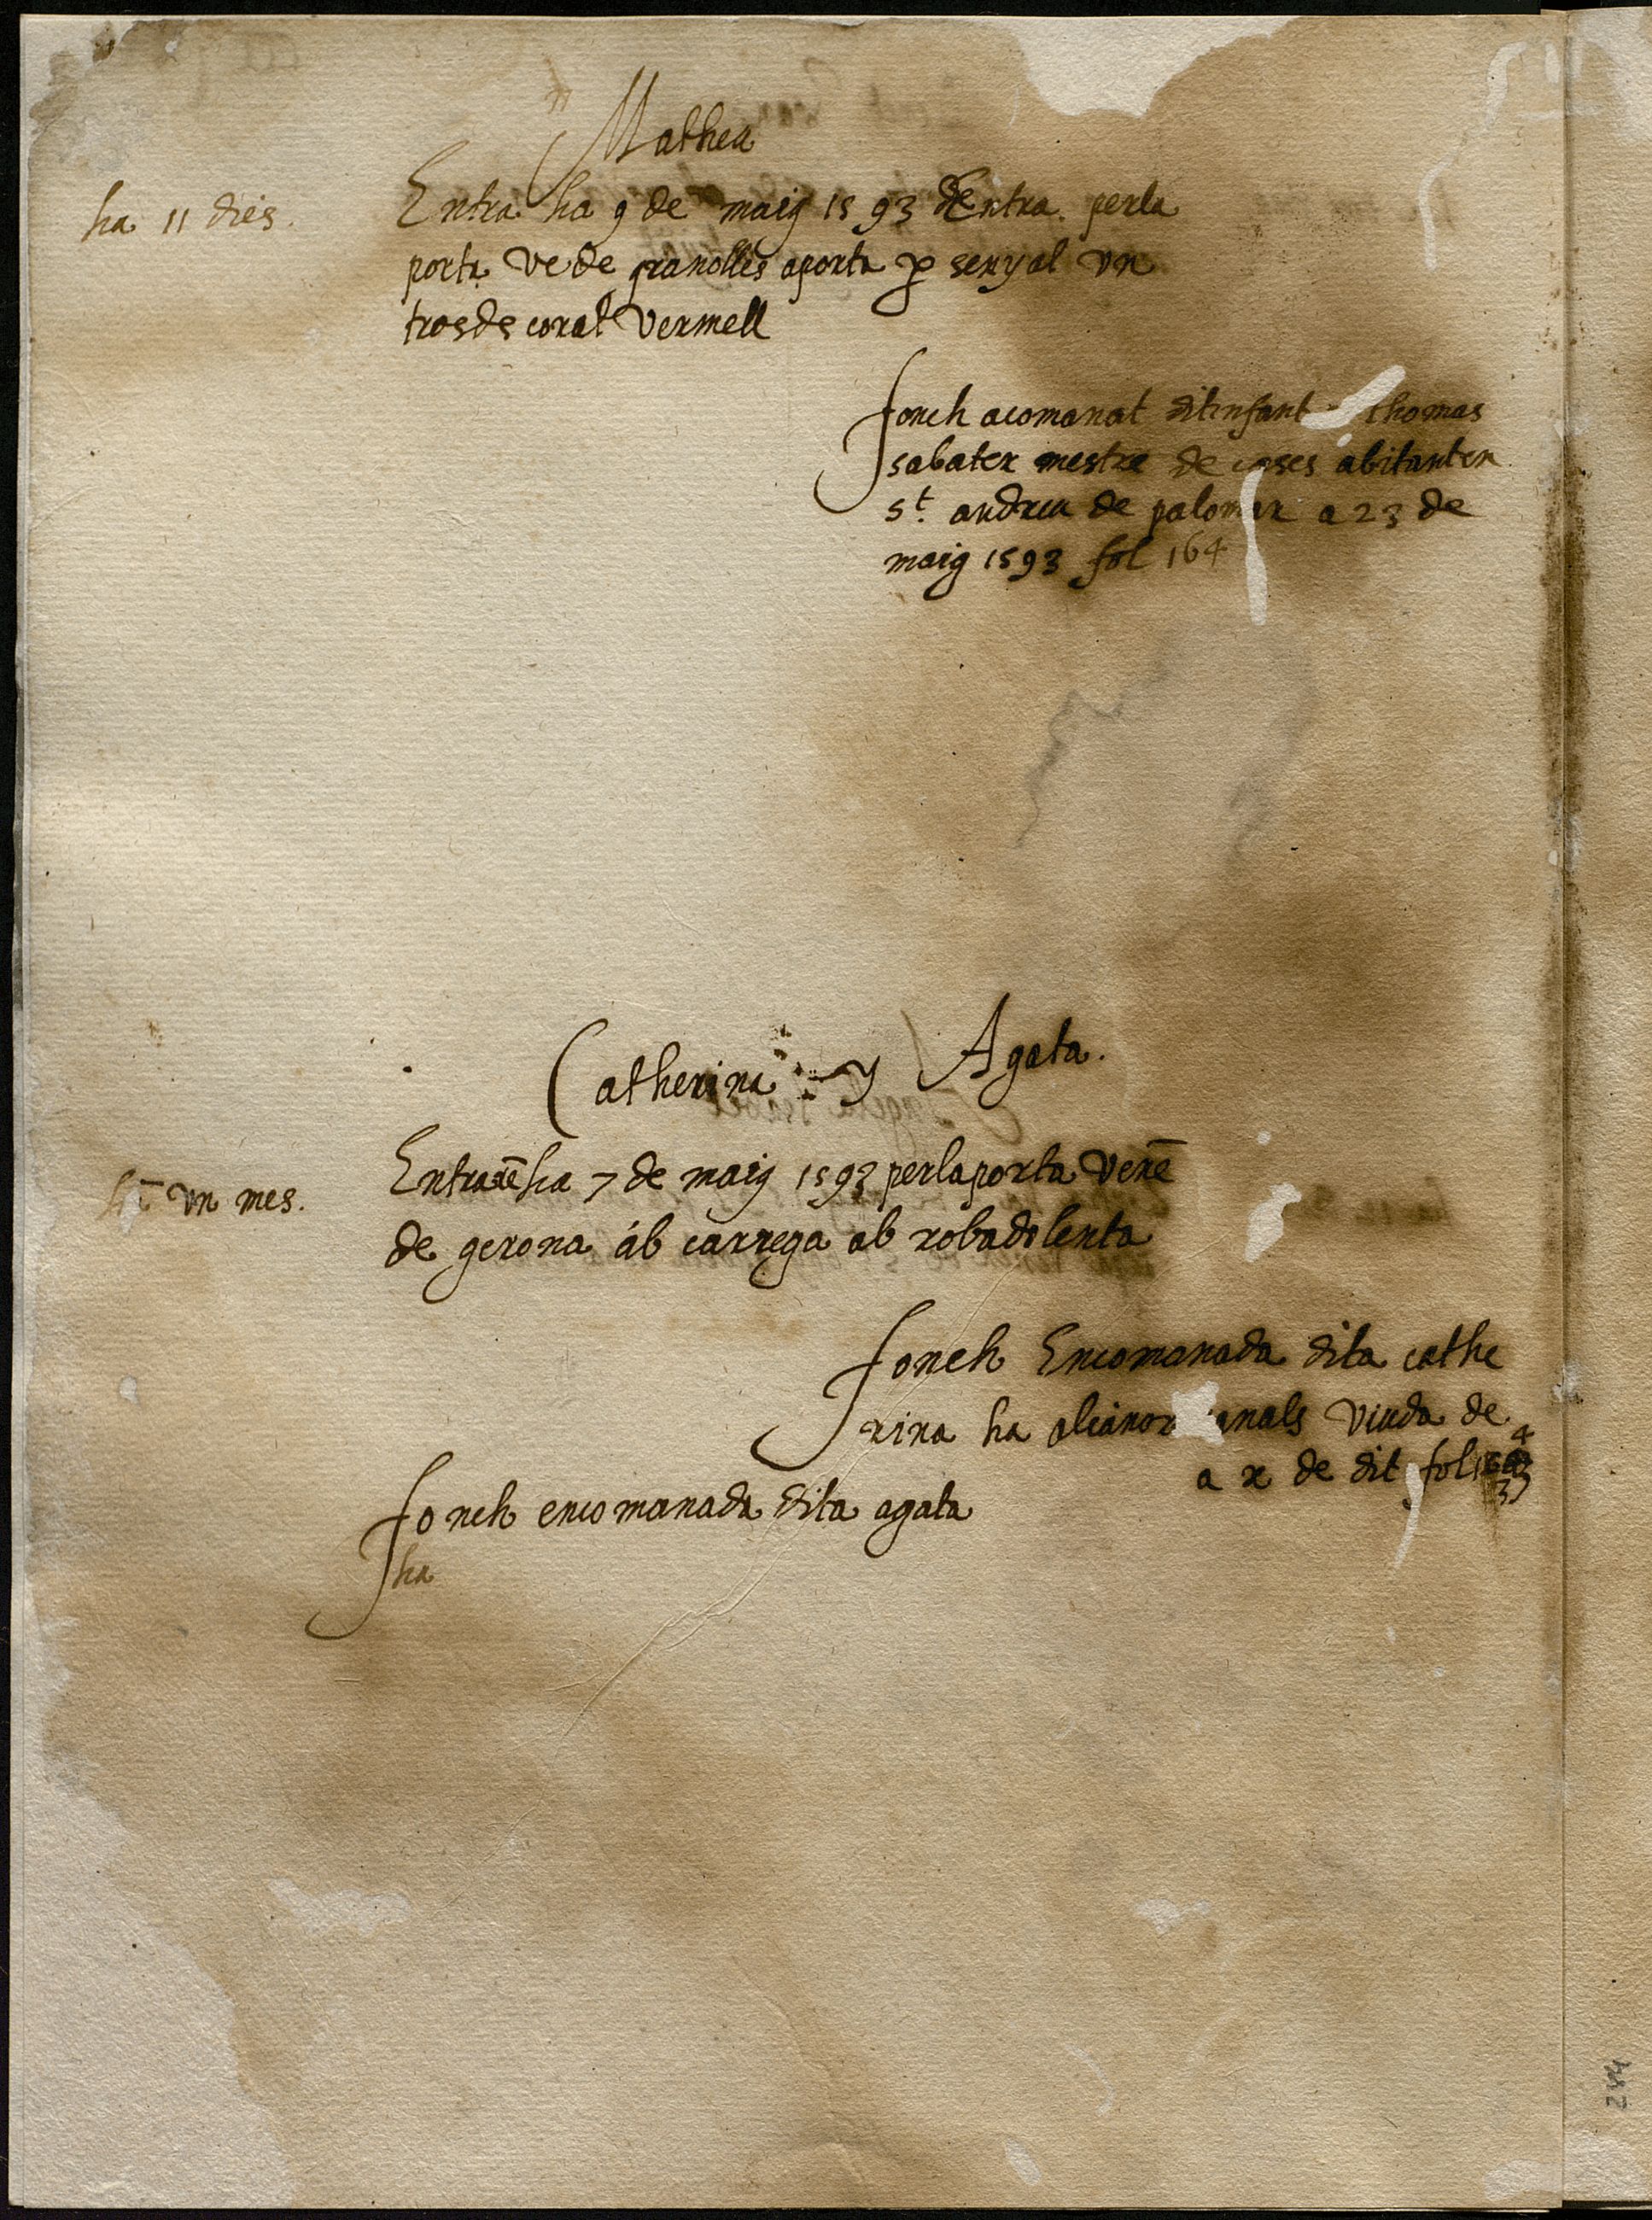 Matheu
ha 11 dies.
Entra ha 9 de maig 1593 Entra perla
porta ve de granolles aporta p senyal vn
tros de coral vermell
fonch acomanat dit infant thomas
sabater mestre de cases abitant en
st. andreu de palomar a 23 de
maig 1593 fol 164
Catherina y Agata.
vn mes.
Entrarē ha 7 de maig 1593 perla porta venē
de gerona ab carrega ab roba dolenta
fonch Encomanada dita cathe
rina ha alianor viuda de
a x de dit fol
fonch encomanada dita agata
ha
284